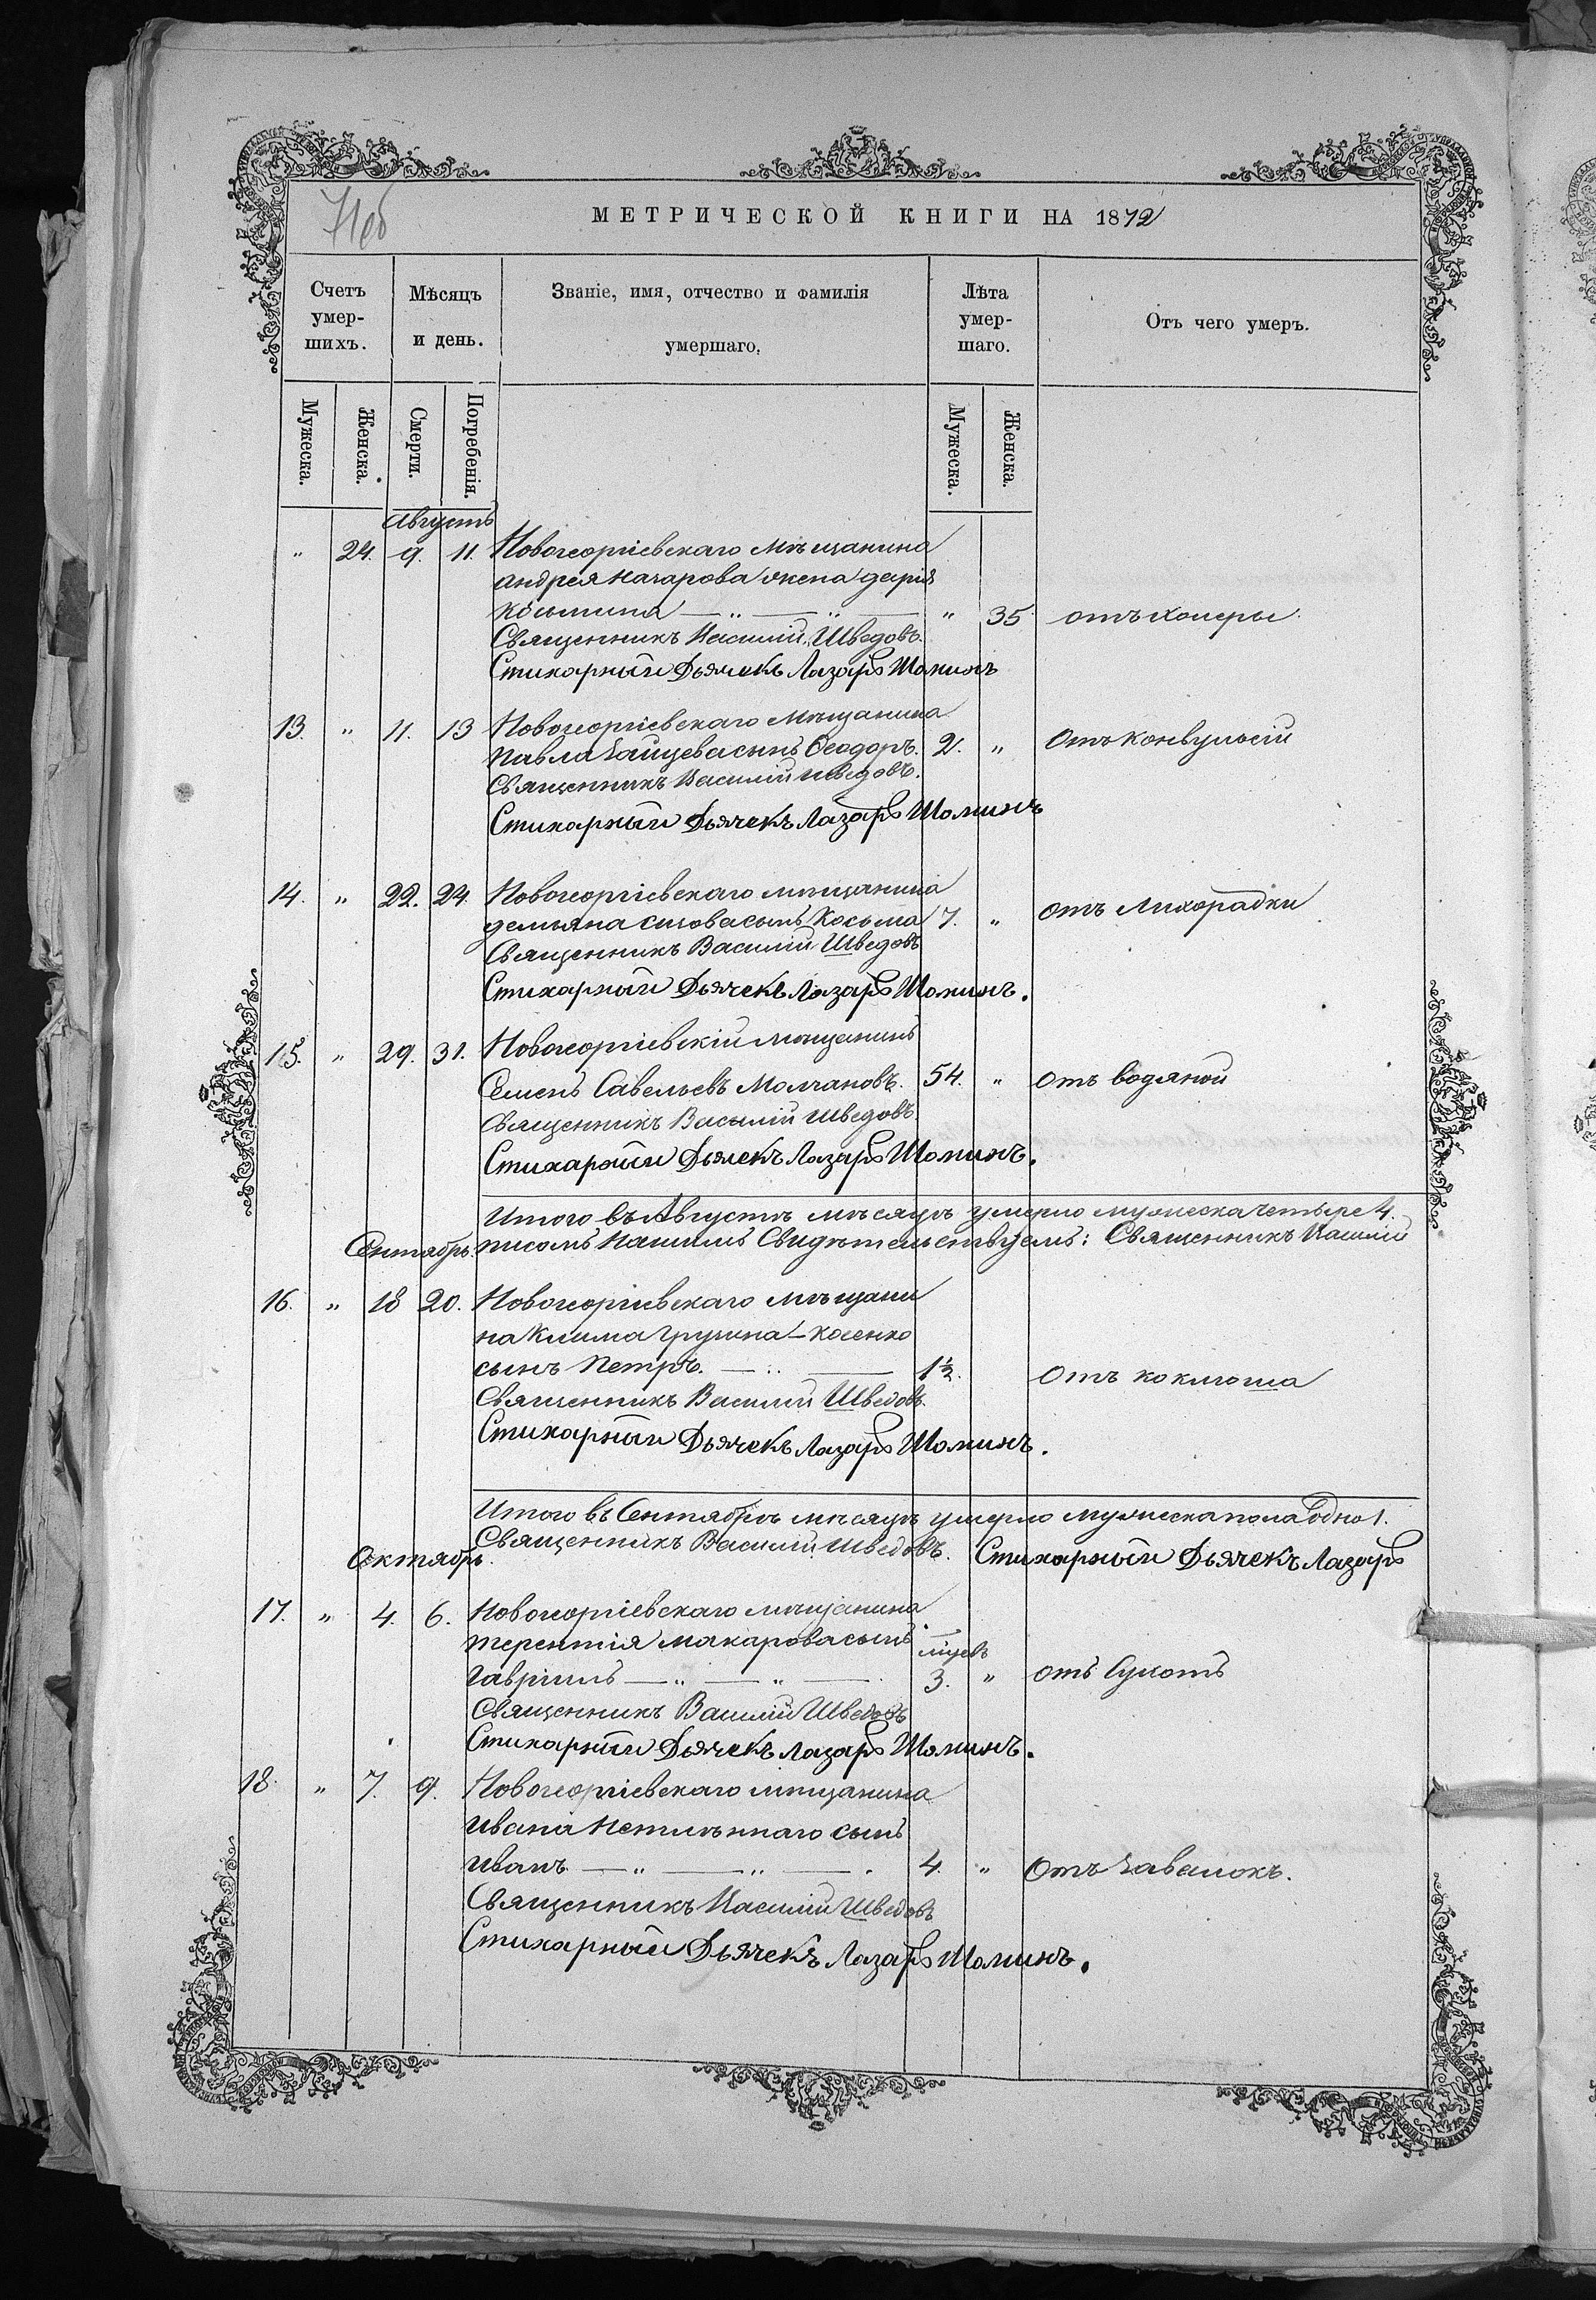 71об
МЕТРИЧЕСКОЙ КНИГИ НА 1872
Счетъ умер-шихъ.
Мѣсяцъ и день.
Званіе, имя, отчество и фамилія умершаго.
Лѣта умер-шаго.
Отъ чего умеръ.
Мужеска. Женска. Смерти. Погребенія. Мужеска. Женска.
Августъ
" 24. 9. 11. Новогеоргіевскаго мѣщанина
Андрея Назарова жена Дарія
Косьмина — " — " — " 35 отъ холеры.
Священникъ Василій Шведовъ.
Стихарный Дьячекъ Лазарь Шоминъ
13. " 11. 13 Новогеоргіевскаго мѣщанина
Павла Зайцева сынъ Ѳеодоръ. 2. " Отъ конвульсіи
Священникъ Василій Шведовъ.
Стихарный Дьячекъ Лазарь Шоминъ
14. " 22. 24. Новогеоргіевскаго мѣщанина
Демьяна сынъ Косьма 7. " отъ лихорадки
Священникъ Василій Шведовъ
Стихарный Дьячекъ Лазарь Шоминъ.
15. " 29. 31. Новогеоргіевскій мѣщанинъ
Семенъ Савельевъ Молчановъ. 54. " отъ водяной
Священникъ Василій Шведовъ
Стихарный Дьячекъ Лазарь Шоминъ.
Итого въ Августѣ мѣсяцѣ умерло мужеска четыре 4.
Сентябрь. Свидѣтельствуемъ: Священникъ Василій
16. " 18 20. Новогеоргіевскаго мѣщани
на Клима Гручина-Косенко
сынъ Петръ. — " — 1½. Отъ коклюша
Священникъ Василій Шведовъ.
Стихарный Дьячекъ Лазарь Шоминъ.
Итого въ Сентябрѣ мѣсяцѣ умерло мужеска пола одно 1.
Священникъ Василій Шведовъ. Стихарный Дьячекъ Лазарь
Октябрь.
17. " 4. 6. Новогеоргіевскаго мѣщанина
Терентія Макарова сынъ мцевъ
Гавріилъ — " — " — 3. " отъ Сухотъ
Священникъ Василій Шведовъ
Стихарный Дьячекъ Лазарь Шоминъ.
18. " 7. 9. Новогеоргіевскаго мѣщанина
Ивана сынъ
Иванъ — " — " — . 4. " Отъ Завалокъ.
Священникъ Василій Шведовъ
Стихарный Дьячекъ Лазарь Шоминъ.